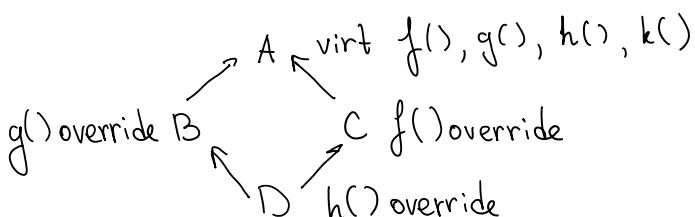 A virt f(), g(), h(), k()
g() override B C f() override
D h() override